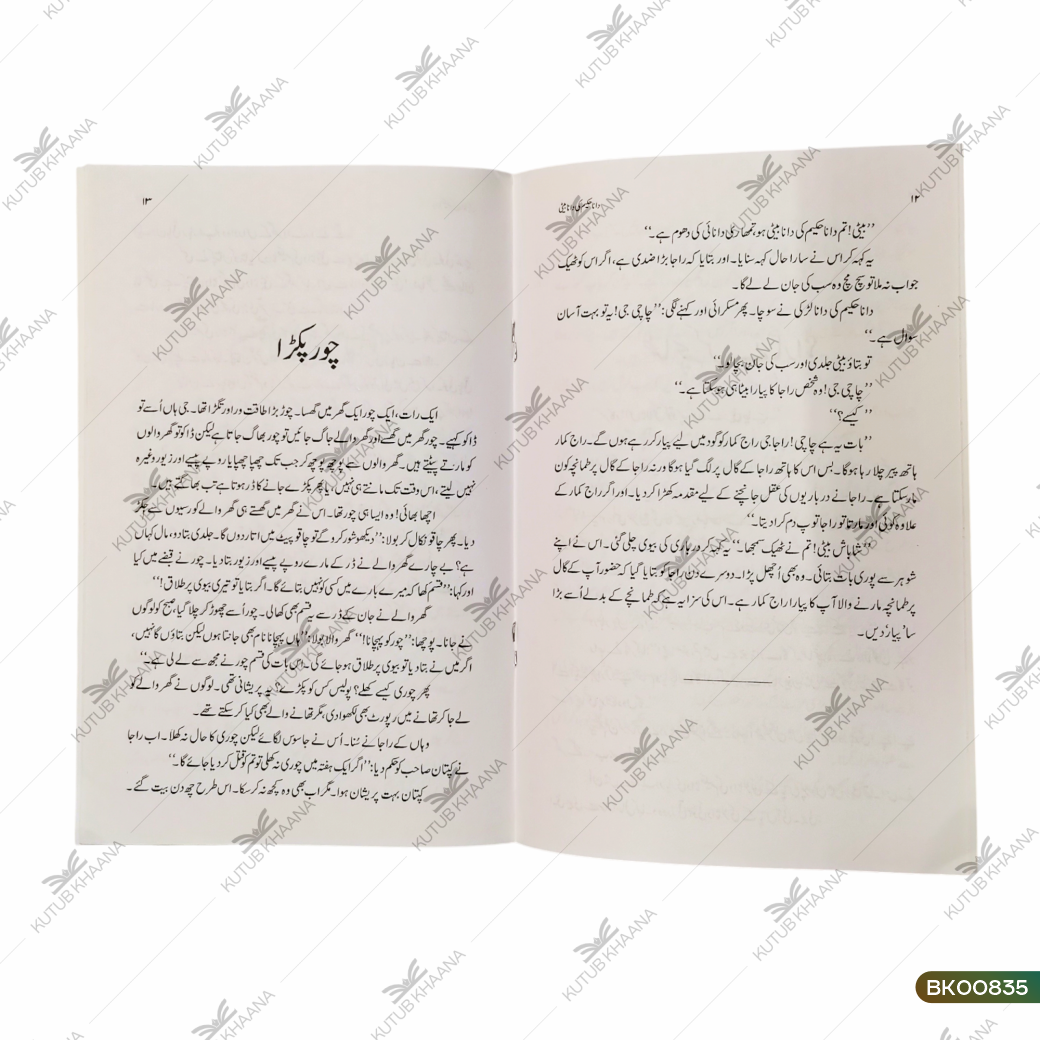 ۱۲
دانا حکیم کی دانا بیٹی
’’بیٹی! تم دانا حکیم کی دانا بیٹی ہو، تمھاری دانائی کی دھوم ہے۔‘‘
یہ کہہ کر اس نے سارا حال کہہ سنایا۔ اور بتایا کہ راجا بڑا ضدی ہے، اگر اس کو ٹھیک
جواب نہ ملا تو سچ مچ وہ سب کی جان لے لے گا۔
دانا حکیم کی دانا لڑکی نے سوچا۔ پھر مسکرائی اور کہنے لگی: ’’چاچی جی! یہ تو بہت آسان
سوال ہے۔‘‘
تو بتاؤ بیٹی جلدی اور سب کی جان بچالو۔‘‘
’’چاچی جی! وہ شخص راجا کا پیارا بیٹا ہی ہوسکتا ہے۔‘‘
’’کیسے؟‘‘
’’بات یہ ہے چاچی! راجا جی راج کمار کو گود میں لیے پیار کر رہے ہوں گے۔ راج کمار
ہاتھ پیر چلا رہا ہوگا۔ بس اس کا ہاتھ راجا کے گال پر لگ گیا ہوگا ورنہ راجا کے گال پر طمانچہ کون
مارسکتا ہے۔ راجا نے درباریوں کی عقل جانچنے کے لیے مقدمہ کھڑا کردیا۔ اور اگر راج کمار کے
علاوہ کوئی اور مارتا تو راجا توپ دم کرادیتا۔‘‘
’’شاباش بیٹی! تم نے ٹھیک سمجھا۔‘‘ یہ کہہ کر درباری کی بیوی چلی گئی۔ اس نے اپنے
شوہر سے پوری بات بتائی۔ وہ بھی اُچھل پڑا۔ دوسرے دن راجا کو بتایا گیا کہ حضور آپ کے گال
پر طمانچہ مارنے والا آپ کا پیارا راج کمار ہے۔ اس کی سزا یہ ہے کہ طمانچے کے بدلے اُسے بڑا
سا ’پیار‘ دیں۔
۱۳
چور پکڑا
ایک رات، ایک چور ایک گھر میں گھسا۔ چور بڑا طاقت ور اور تگڑا تھا۔ جی ہاں اُسے تو
ڈاکو کہیے۔ چور گھر میں گھسے اور گھر والے جاگ جائیں تو چور بھاگ جاتا ہے لیکن ڈاکو تو گھر والوں
کو مارتے پیٹتے ہیں۔ گھر والوں سے پوچھ پوچھ کر جب تک چھپا چھپایا روپے پیسے اور زیور وغیرہ
نہیں لیتے، اس وقت تک مانتے ہی نہیں، یا پھر پکڑے جانے کا ڈر ہوتا ہے تب بھاگتے ہیں۔
اچھا بھائی! وہ ایسا ہی چور تھا۔ اس نے گھر میں گھستے ہی گھر والے کو رسیوں سے جکڑ
دیا۔ پھر چاقو نکال کر بولا: ’’دیکھو شور کروگے تو چاقو پیٹ میں اتار دوں گا۔ جلدی بتا دو، مال کہاں
ہے؟ بے چارے گھر والے نے ڈر کے مارے روپے پیسے اور زیور بتا دیا۔ چور نے قبضے میں کیا
اور کہا: ’’قسم کھا کہ میرے بارے میں کسی کو نہیں بتائے گا۔ اگر بتایا تو تیری بیوی پر طلاق!‘‘
گھر والے نے جان کے ڈر سے یہ قسم بھی کھالی۔ چور اُسے چھوڑ کر چلا گیا، صبح کو لوگوں
نے جانا۔ پوچھا: ’’چور کو پہچانا!‘‘ گھر والا بولا: ’’ہاں پہچانا نام بھی جانتا ہوں لیکن بتاؤں گا نہیں،
اگر میں نے بتا دیا تو بیوی پر طلاق ہو جائے گی۔ اس بات کی قسم چور نے مجھ سے لے لی ہے۔‘‘
پھر چوری کیسے کھلے؟ پولیس کس کو پکڑے؟ یہ پریشانی تھی۔ لوگوں نے گھر والے کو
لے جا کر تھانے میں رپورٹ بھی لکھوا دی، مگر تھانے والے بھی کیا کرسکتے تھے۔
وہاں کے راجا نے سُنا۔ اُس نے جاسوس لگائے لیکن چوری کا حال نہ کھلا۔ اب راجا
نے کپتان صاحب کو حکم دیا: ’’اگر ایک ہفتہ میں چوری نہ کھلی تو تم کو قتل کر دیا جائے گا۔‘‘
کپتان بہت پریشان ہوا۔ مگر اب بھی وہ کچھ نہ کرسکا۔ اس طرح چھ دن بیت گئے۔
KUTUB KHAANA
BK00835